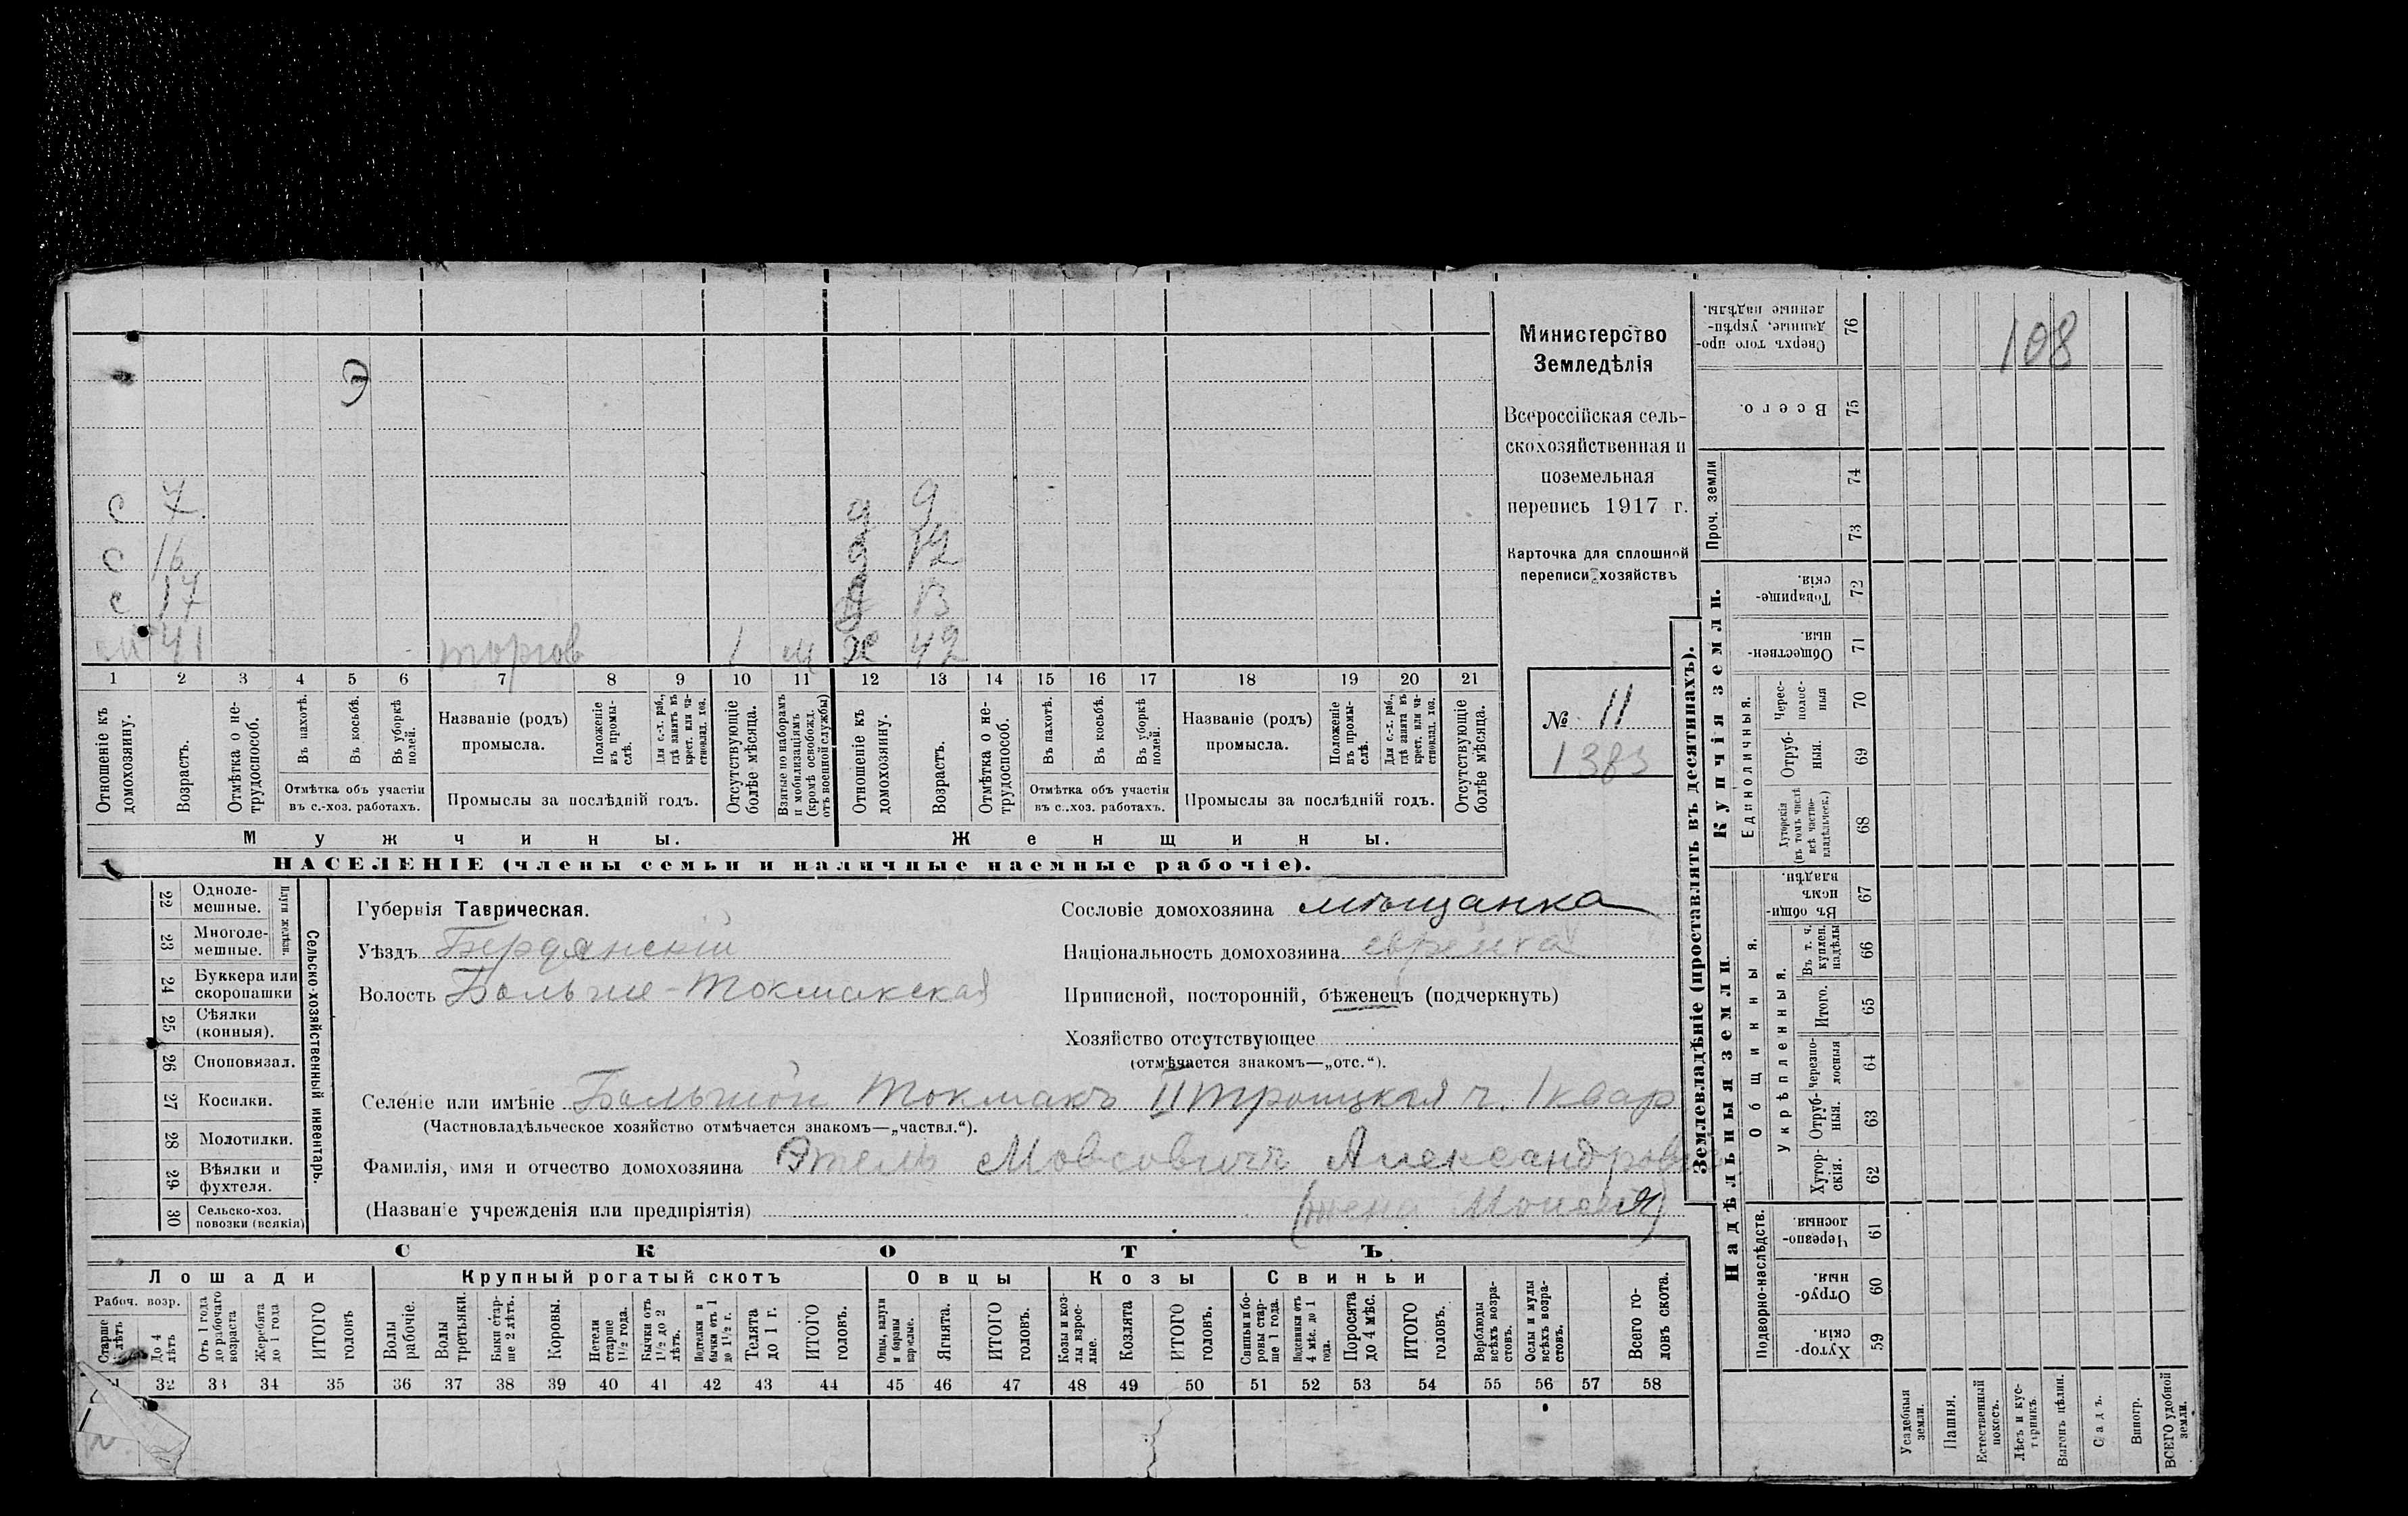 108
Министерство
Земледѣлія
Всероссійская сель-
скохозяйственная и
поземельная
перепись 1917 г.
Карточка для сплошной
переписи хозяйствъ
№ 11
1383
Э
с 7 д 9
с 16 д 12
с 17 д 13
м 41 торгов 1 м ж 42
1 2 3 4 5 6 7 8 9 10 11 12 13 14 15 16 17 18 19 20 21
Отношеніе къ домохозяину.
Возрастъ.
Отмѣтка о не-трудоспособ.
Въ пахотѣ.
Въ косьбѣ.
Въ уборкѣ полей.
Отмѣтка объ участіи
въ с.-хоз. работахъ.
Названіе (родъ)
промысла.
Положеніе въ промы-слѣ.
Для с.-х. раб., гдѣ занятъ въ крест. или ча-стновлад. хоз.
Промыслы за послѣдній годъ.
Отсутствующіе болѣе мѣсяца.
Взятые по наборамъ и мобилизаціямъ (кромѣ освобожд. отъ военной службы)
Отношеніе къ домохозяину.
Возрастъ.
Отмѣтка о не-трудоспособ.
Въ пахотѣ.
Въ косьбѣ.
Въ уборкѣ полей.
Отмѣтка объ участіи
въ с.-хоз. работахъ.
Названіе (родъ)
промысла.
Положеніе въ промы-слѣ.
Для с.-х. раб., гдѣ занята въ крест. или ча-стновлад. хоз.
Промыслы за послѣдній годъ.
Отсутствующіе болѣе мѣсяца.
Мужчины. Женщины.
НАСЕЛЕНІЕ (члены семьи и наличные наемные рабочіе).
Сельско-хозяйственный инвентарь.
Плуги желѣзн.
22 Одноле-мешные.
23 Многоле-мешные.
24 Буккера или скоропашки
25 Сѣялки (конныя).
26 Сноповязал.
27 Косилки.
28 Молотилки.
29 Вѣялки и фухтеля.
30 Сельско-хоз. повозки (всякія)
Губернія Таврическая.
Уѣздъ Бердянскій
Волость Больше-Токмакская
Сословіе домохозяина мѣщанка
Національность домохозяина еврейка
Приписной, посторонній, бѣженецъ (подчеркнуть)
Хозяйство отсутствующее
(отмѣчается знакомъ—„отс.“).
Селеніе или имѣніе Большой Токмакъ II Троицкая ч. 1 квар
(Частновладѣльческое хозяйство отмѣчается знакомъ—„частвл.“).
Фамилія, имя и отчество домохозяина Этель Мовсовичъ Александров
(Названіе учрежденія или предпріятія) (жена
СКОТЪ
Лошади Крупный рогатый скотъ Овцы Козы Свиньи
Рабоч. возр.
Старше лѣтъ
До 4 лѣтъ
Отъ 1 года до рабочаго возраста
Жеребята до 1 года
ИТОГО головъ
Волы рабочіе.
Волы третьяки.
Быки стар-ше 2 лѣтъ.
Коровы.
Нетели старше 1½ года.
Бычки отъ 1½ до 2 лѣтъ.
Подтелки и бычки отъ 1 до 1½ г.
Телята до 1 г.
ИТОГО головъ.
Овцы, валухи и бараны взрослые.
Ягнята.
ИТОГО головъ.
Козы и коз-лы взрос-лые.
Козлята
ИТОГО головъ.
Свиньи и бо-ровы стар-ше 1 года.
Подсвинки отъ 4 мѣс. до 1 года.
Поросята до 4 мѣс.
ИТОГО головъ.
Верблюды всѣхъ возра-стовъ.
Ослы и мулы всѣхъ возра-стовъ.
Всего го-ловъ скота.
32 33 34 35 36 37 38 39 40 41 42 43 44 45 46 47 48 49 50 51 52 53 54 55 56 57 58
Землевладѣніе (проставлять въ десятинахъ).
Надѣльныя земли.
Купчія земли.
Проч. земли
Подворно-наслѣдств.
Общинныя.
Укрѣпленныя.
Единоличныя.
76 Сверхъ того про-данные, укрѣп-ленные надѣлы.
75 Всего.
74
73
72 Товарище-скія.
71 Обществен-ныя.
70 Черес-полос-ныя
69 Отруб-ныя.
68 Хуторскія (въ томъ числѣ всѣ частно-владѣльческ.)
67 Въ общи-номъ владѣн.
66 Въ т. ч. куплен. надѣлы
65 Итого.
64 Черезпо-лосныя
63 Отруб-ныя.
62 Хутор-скія.
61 Черезпо-лосныя.
60 Отруб-ныя.
59 Хутор-скія.
Усадебныя земли.
Пашня.
Естественный покосъ.
Лѣсъ и кус-тарникъ.
Выгонъ цѣлин.
Садъ.
Виногр.
ВСЕГО удобной земли.